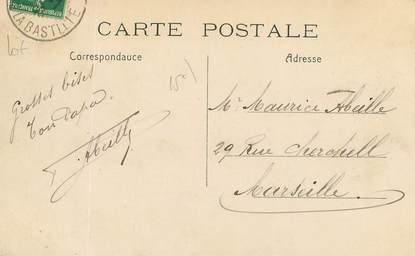 LA BASTILLE
CARTE POSTALE
Correspondance
Adresse
lot
Grosses bises
Ton Papa.
Abeille
Mr Maurice Abeille
29 Rue Cherchell
Marseille.